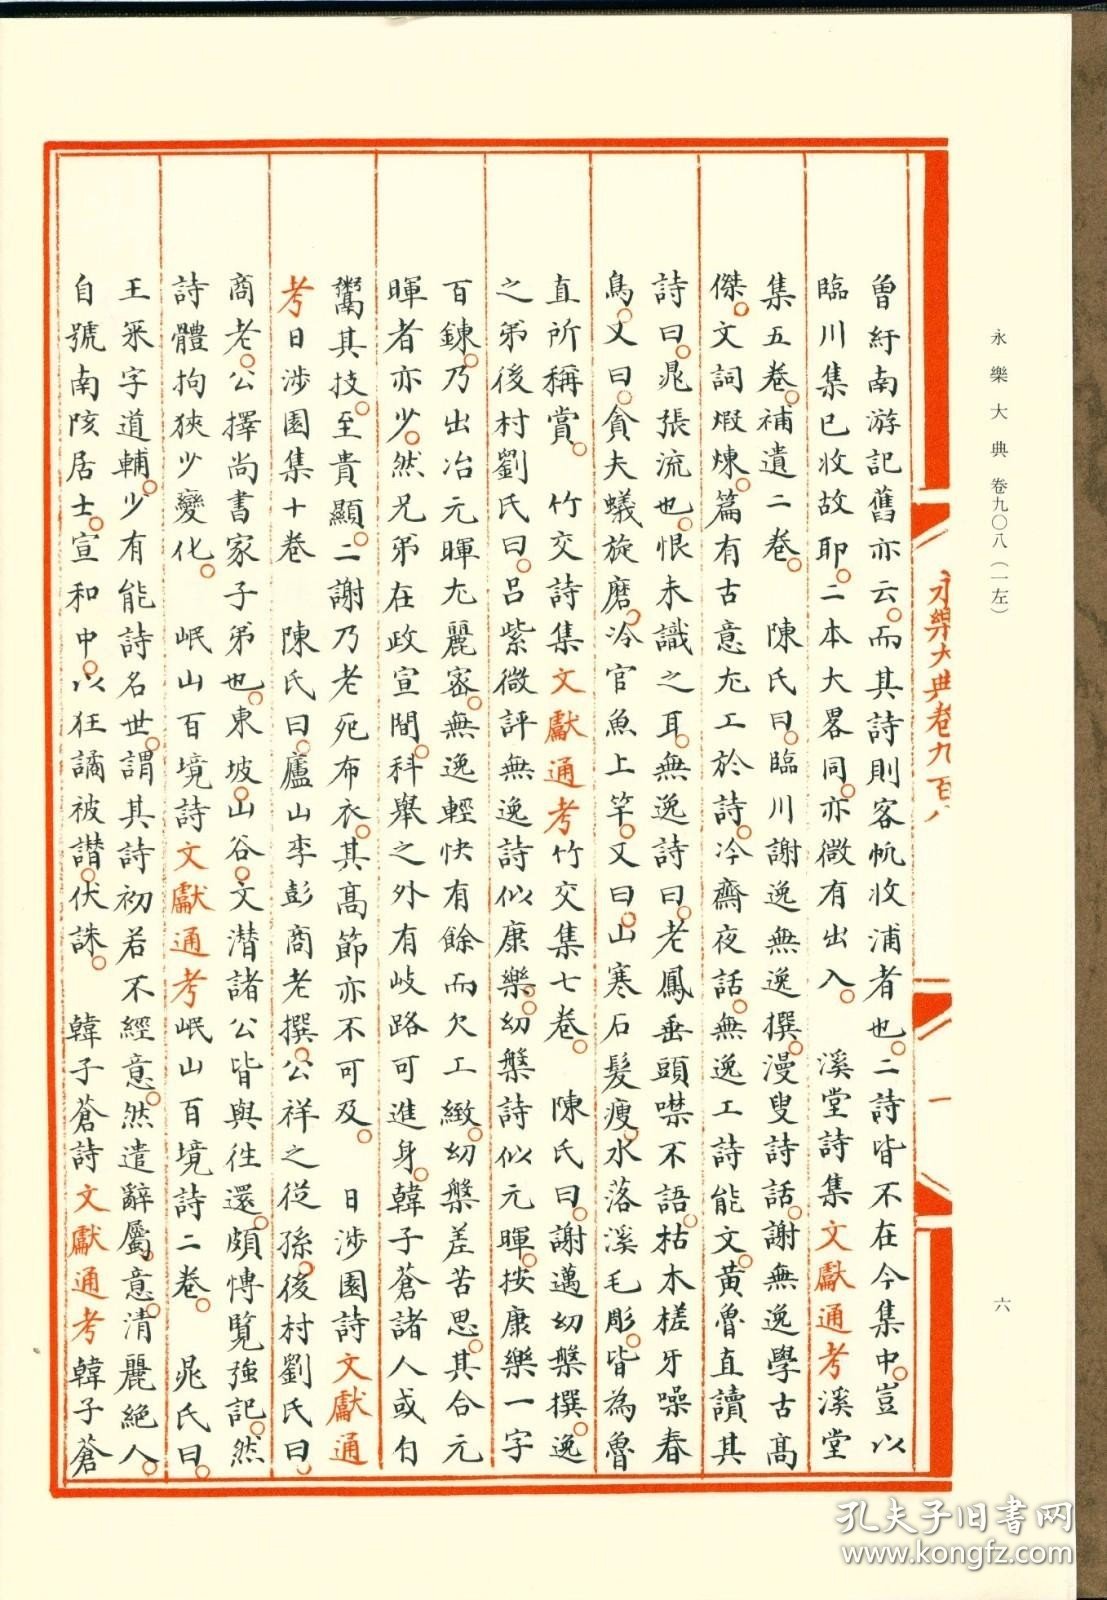 永樂大典 卷九〇八（一左）
六
永樂大典卷九百八
一
曾紆南游記舊亦云。而其詩則客帆收浦者也。二詩皆不在今集中。豈以
臨川集已收故耶。二本大畧同。亦微有出入。 溪堂詩集文獻通考溪堂
集五卷。補遺二卷。 陳氏曰。臨川謝逸無逸撰。漫叟詩話。謝無逸學古高
傑。文詞煆煉。篇有古意尤工於詩。冷齋夜話。無逸工詩能文。黃魯直讀其
詩曰。晁張流也。恨未識之耳。無逸詩曰。老鳳垂頭噤不語。枯木槎牙噪春
鳥。又曰。貪夫蟻旋磨。冷官魚上竿。又曰。山寒石髮瘦。水落溪毛彫。皆為魯
直所稱賞。 竹交詩集文獻通考竹交集七卷。 陳氏曰。謝邁幼槃撰。逸
之弟後村劉氏曰。呂紫微評無逸詩似康樂。幼槃詩似元暉。按康樂一字
百鍊。乃出冶元暉尤麗密。無逸輕快有餘而欠工緻。幼槃差苦思。其合元
暉者亦少。然兄弟在政宣間。科舉之外有岐路可進身。韓子蒼諸人或自
鬻其技。至貴顯。二謝乃老死布衣。其高節亦不可及。 日涉園詩文獻通
考日涉園集十卷 陳氏曰。廬山李彭商老撰。公祥之從孫。後村劉氏曰。
商老。公擇尚書家子弟也。東坡。山谷。文潛諸公皆與往還。頗愽覧強記。然
詩體拘狹少變化。 岷山百境詩文獻通考岷山百境詩二卷。 晁氏曰。
王寀字道輔。少有能詩名世。謂其詩初若不經意。然遣辭屬意。清麗絕人。
自號南陔居士。宣和中。以狂譎被譖。伏誅。 韓子蒼詩文獻通考韓子蒼
孔夫子旧书网
www.kongfz.com